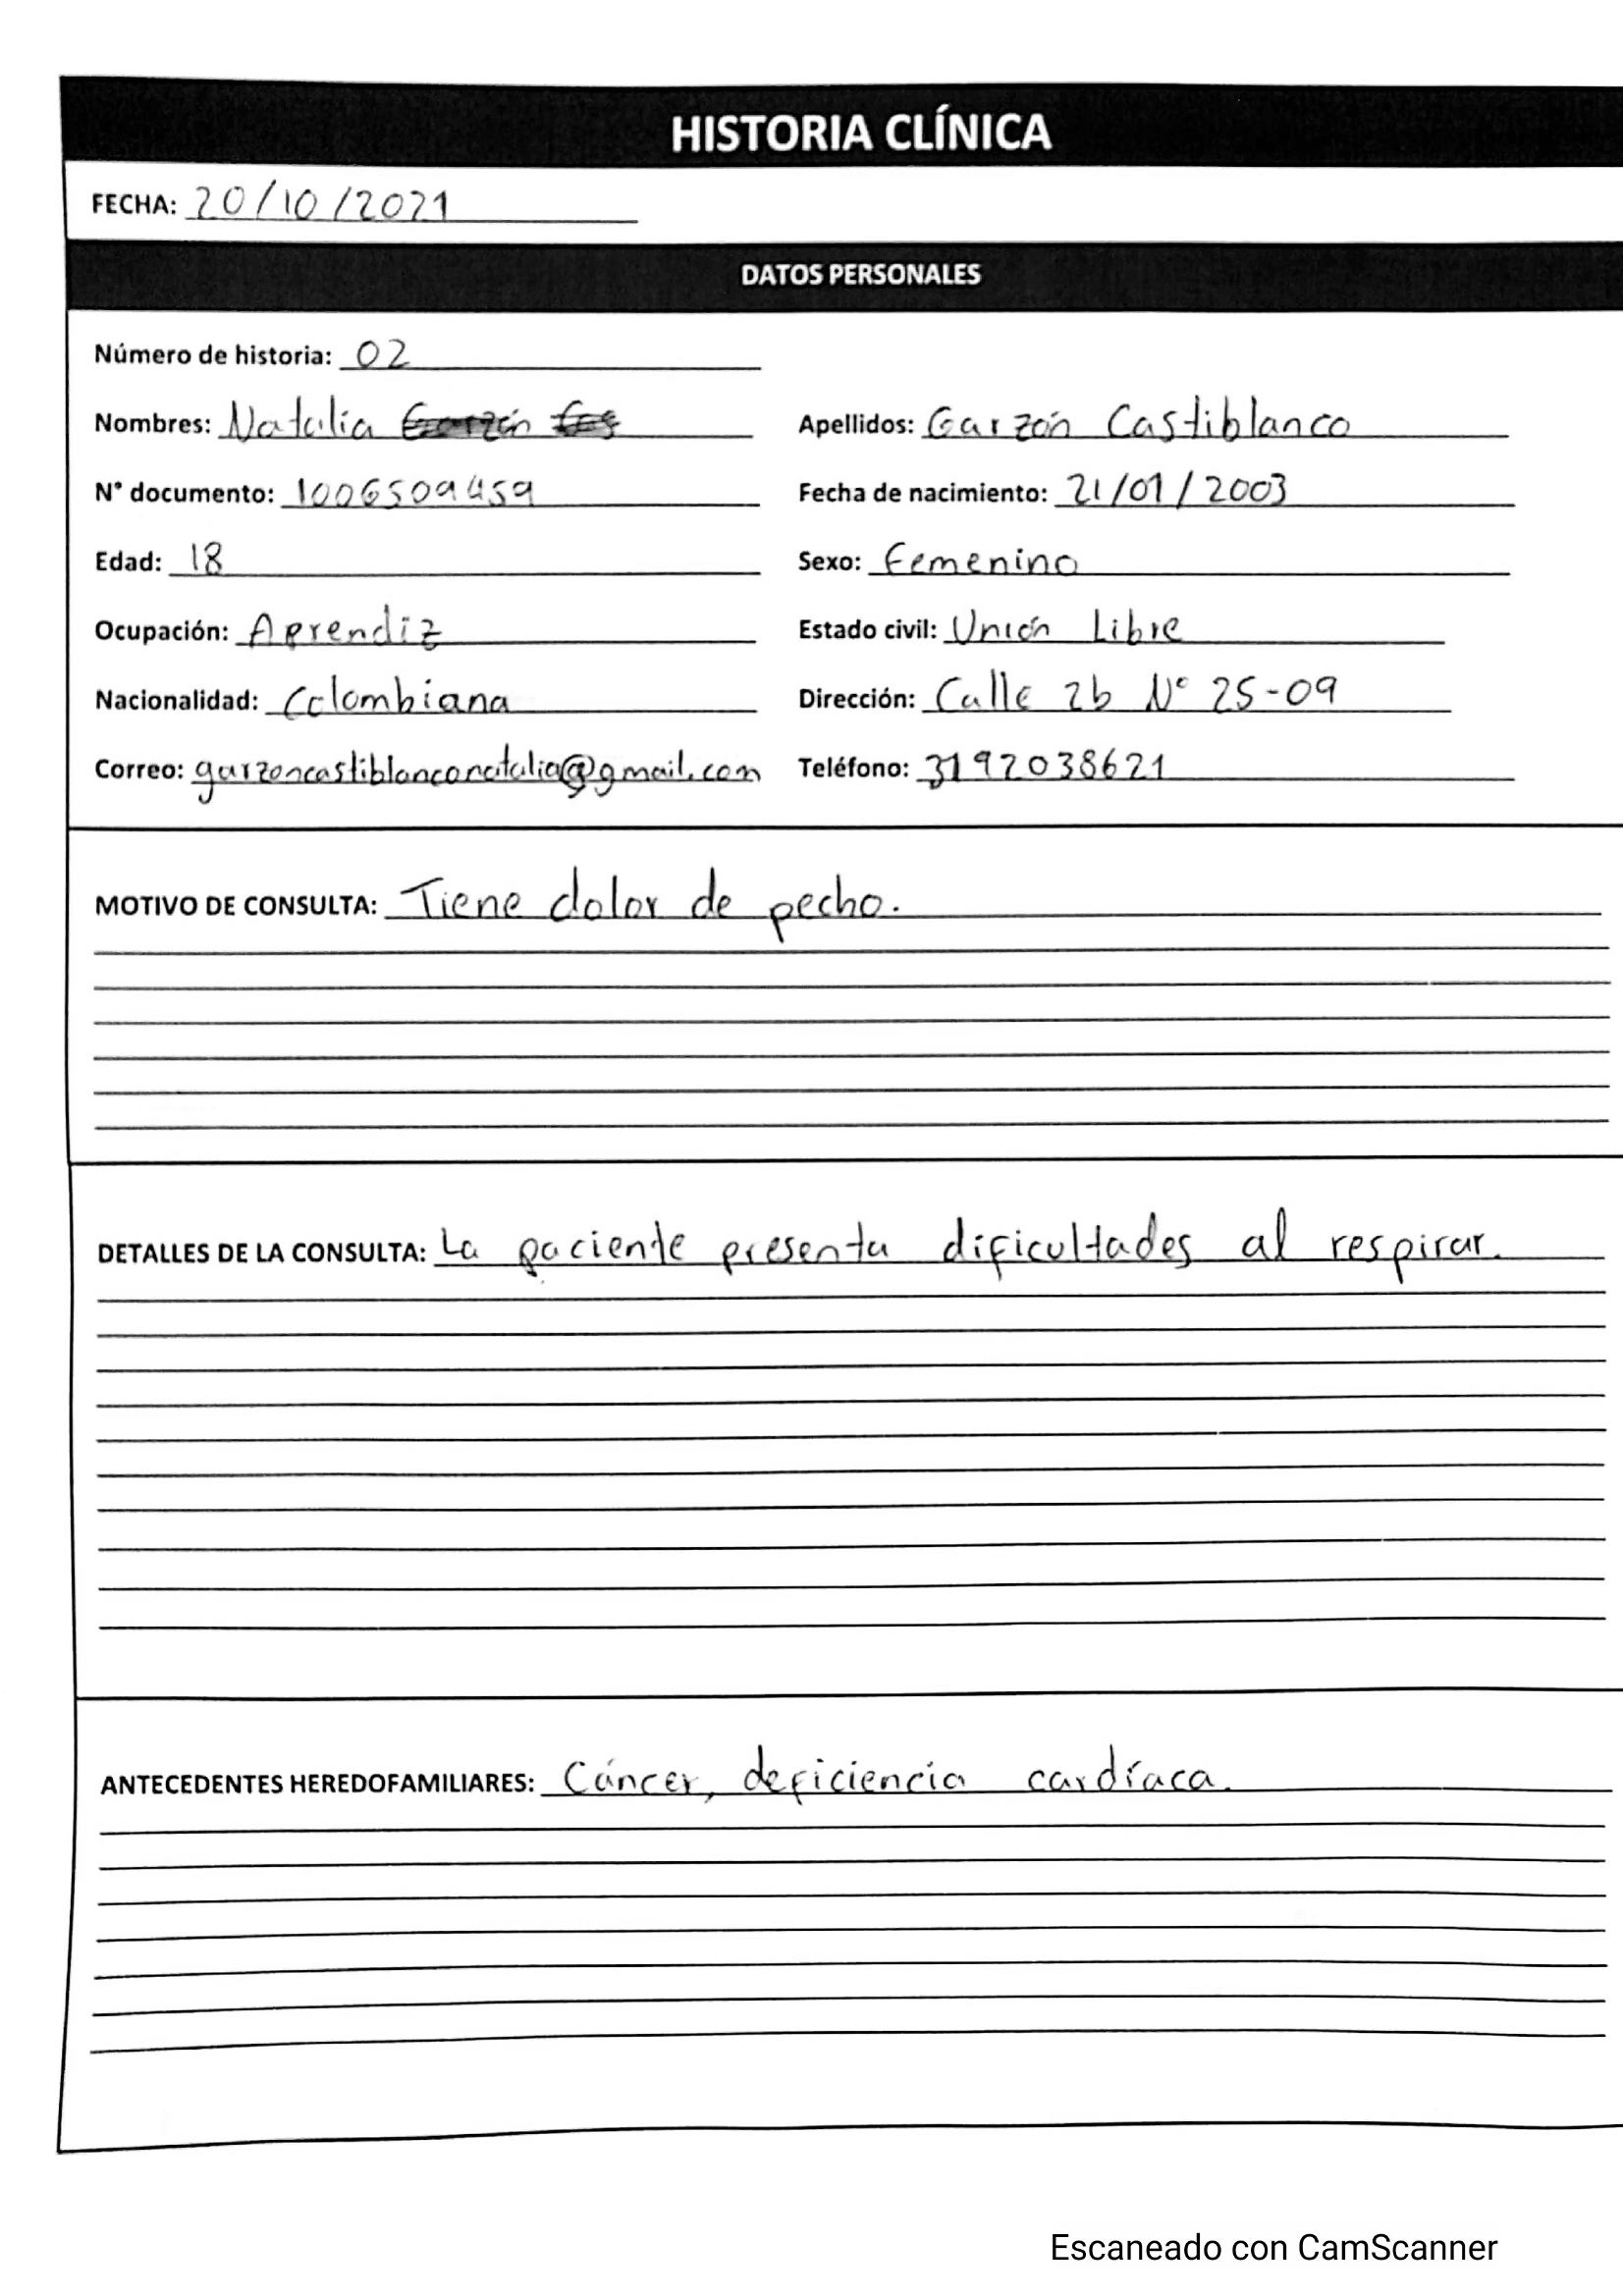 HISTORIA CLÍNICA
FECHA: 20/10/2021
DATOS PERSONALES
Número de historia: 02
Nombres: Natalia Apellidos: Garzón Castiblanco
N° documento: 1006509459 Fecha de nacimiento: 21/01/2003
Edad: 18 Sexo: Femenino
Ocupación: Aprendiz Estado civil: Unión Libre
Nacionalidad: Colombiana Dirección: Calle 2b N° 25-09
Correo: garzoncastiblanconatalia@gmail.com Teléfono: 3192038621
MOTIVO DE CONSULTA: Tiene dolor de pecho.
DETALLES DE LA CONSULTA: La paciente presenta dificultades al respirar.
ANTECEDENTES HEREDOFAMILIARES: Cáncer, deficiencia cardíaca.
Escaneado con CamScanner